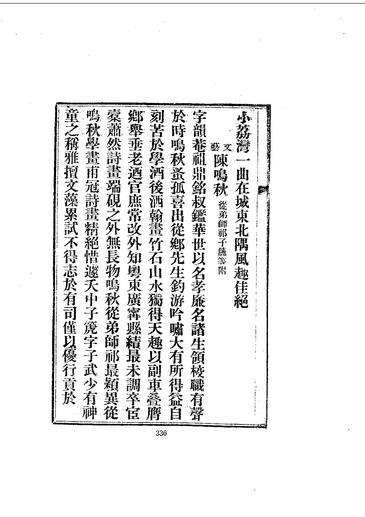 小荔灣一曲在城東北隅風趣佳絕
文藝 陳鳴秋 從弟師祁子篪等附
字韻菴祖鼎銘叔鑑華世以名孝廉名諸生領校職有聲
於時鳴秋蚤孤喜出從鄉先生釣游吟嘯大有所得益自
刻苦於學酒後洒翰畫竹石山水獨得天趣以副車叠膺
鄉舉垂老迺官庶常改外知粵東廣寧縣績最未調卒宦
橐蕭然詩畫端硯之外無長物鳴秋從弟師祁最穎異從
鳴秋學畫甫冠詩畫精絕惜遽夭中子篪字子武少有神
童之稱雅擅文藻累試不得志於有司僅以優行貢於
336